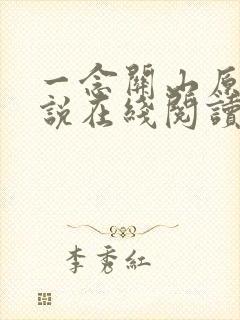 一念關山原
說在綫閱讀
李秀紅